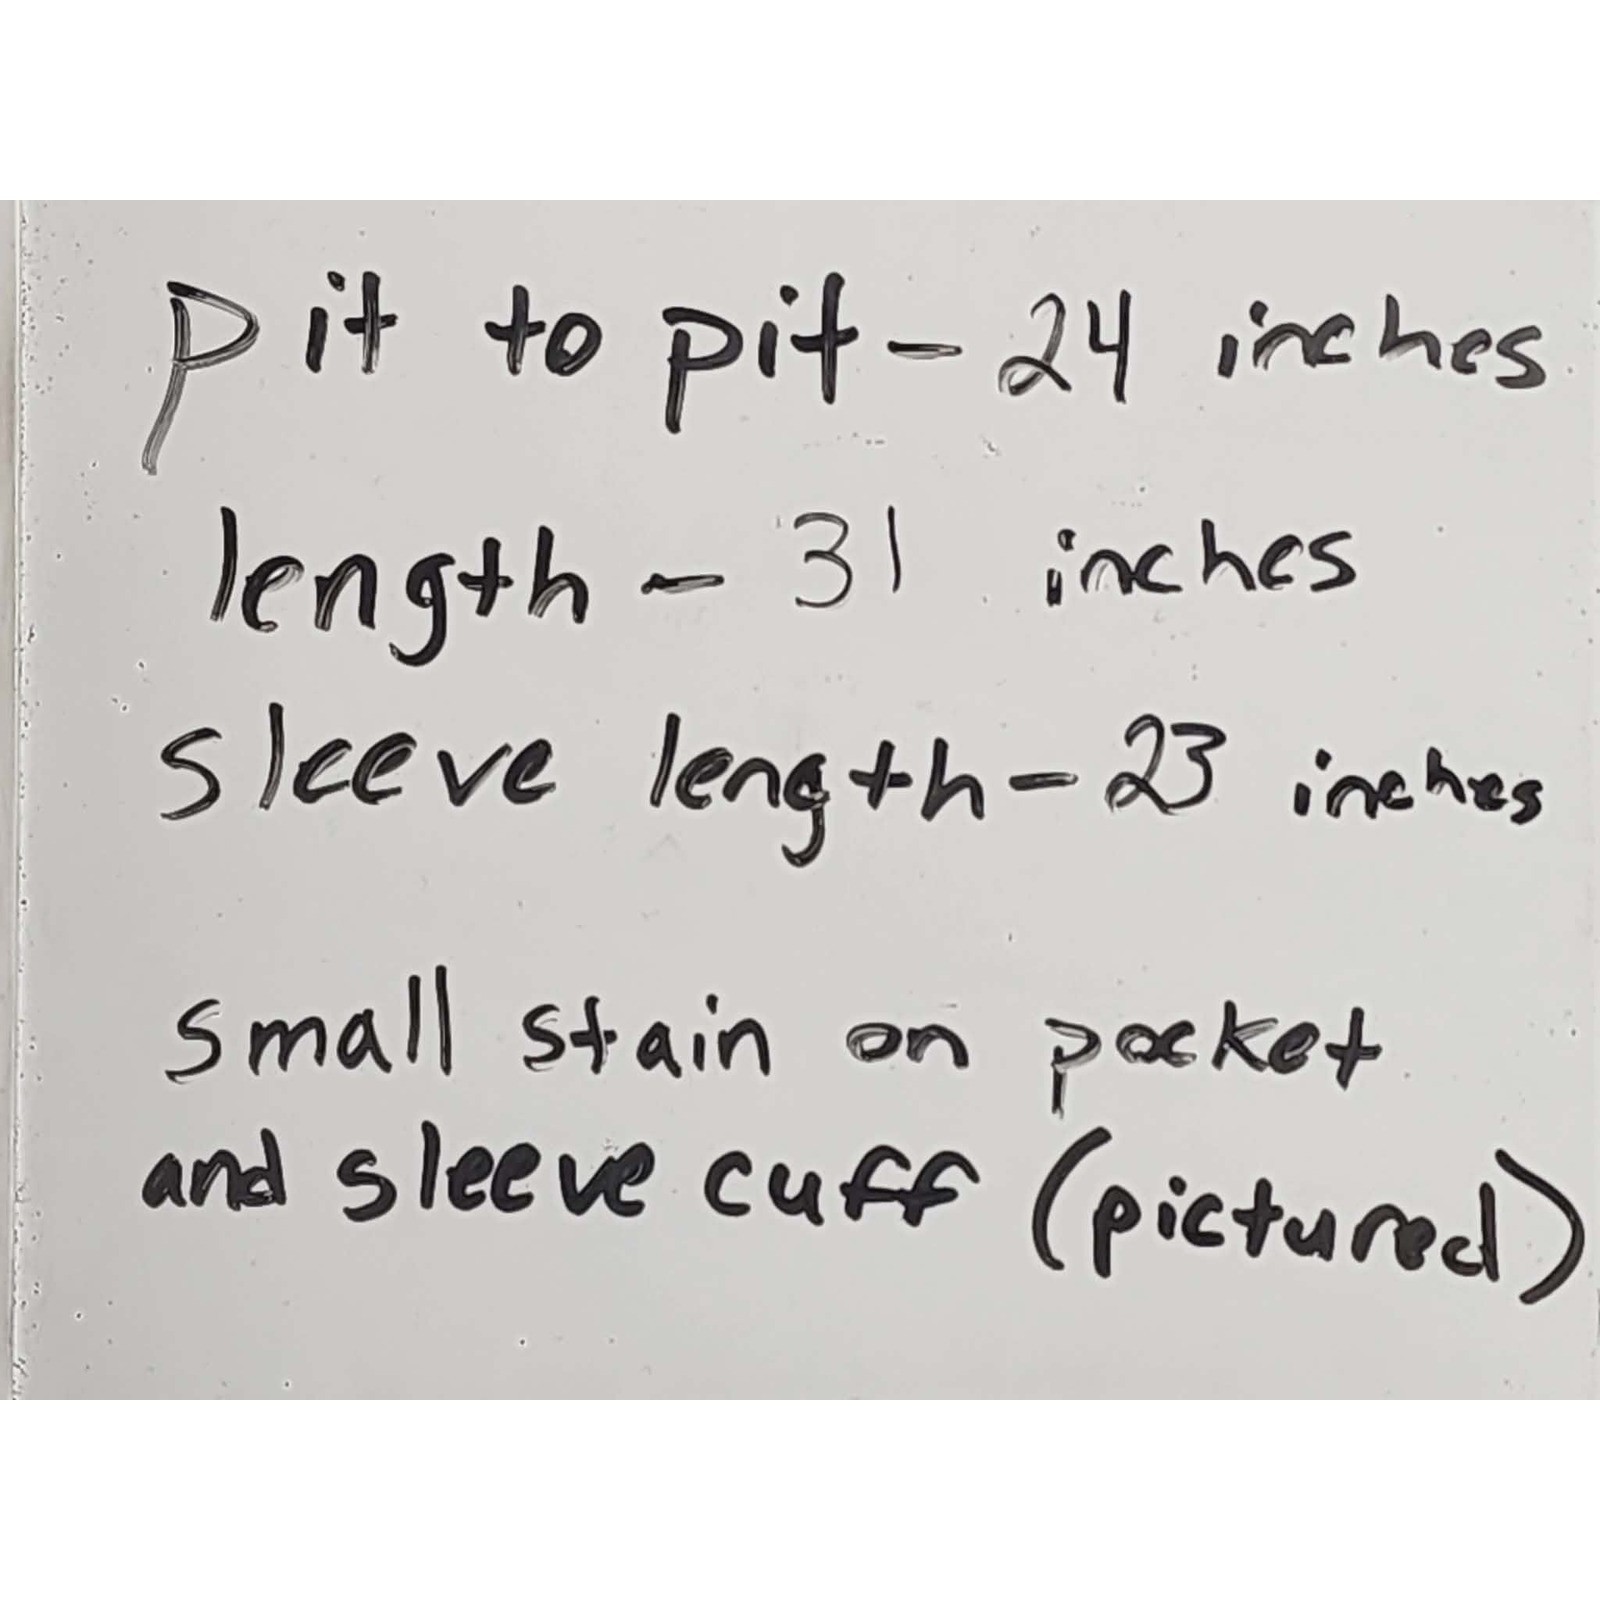 pit to pit - 24 inches
length - 31 inches
sleeve length - 23 inches
small stain on pocket
and sleeve cuff (pictured)